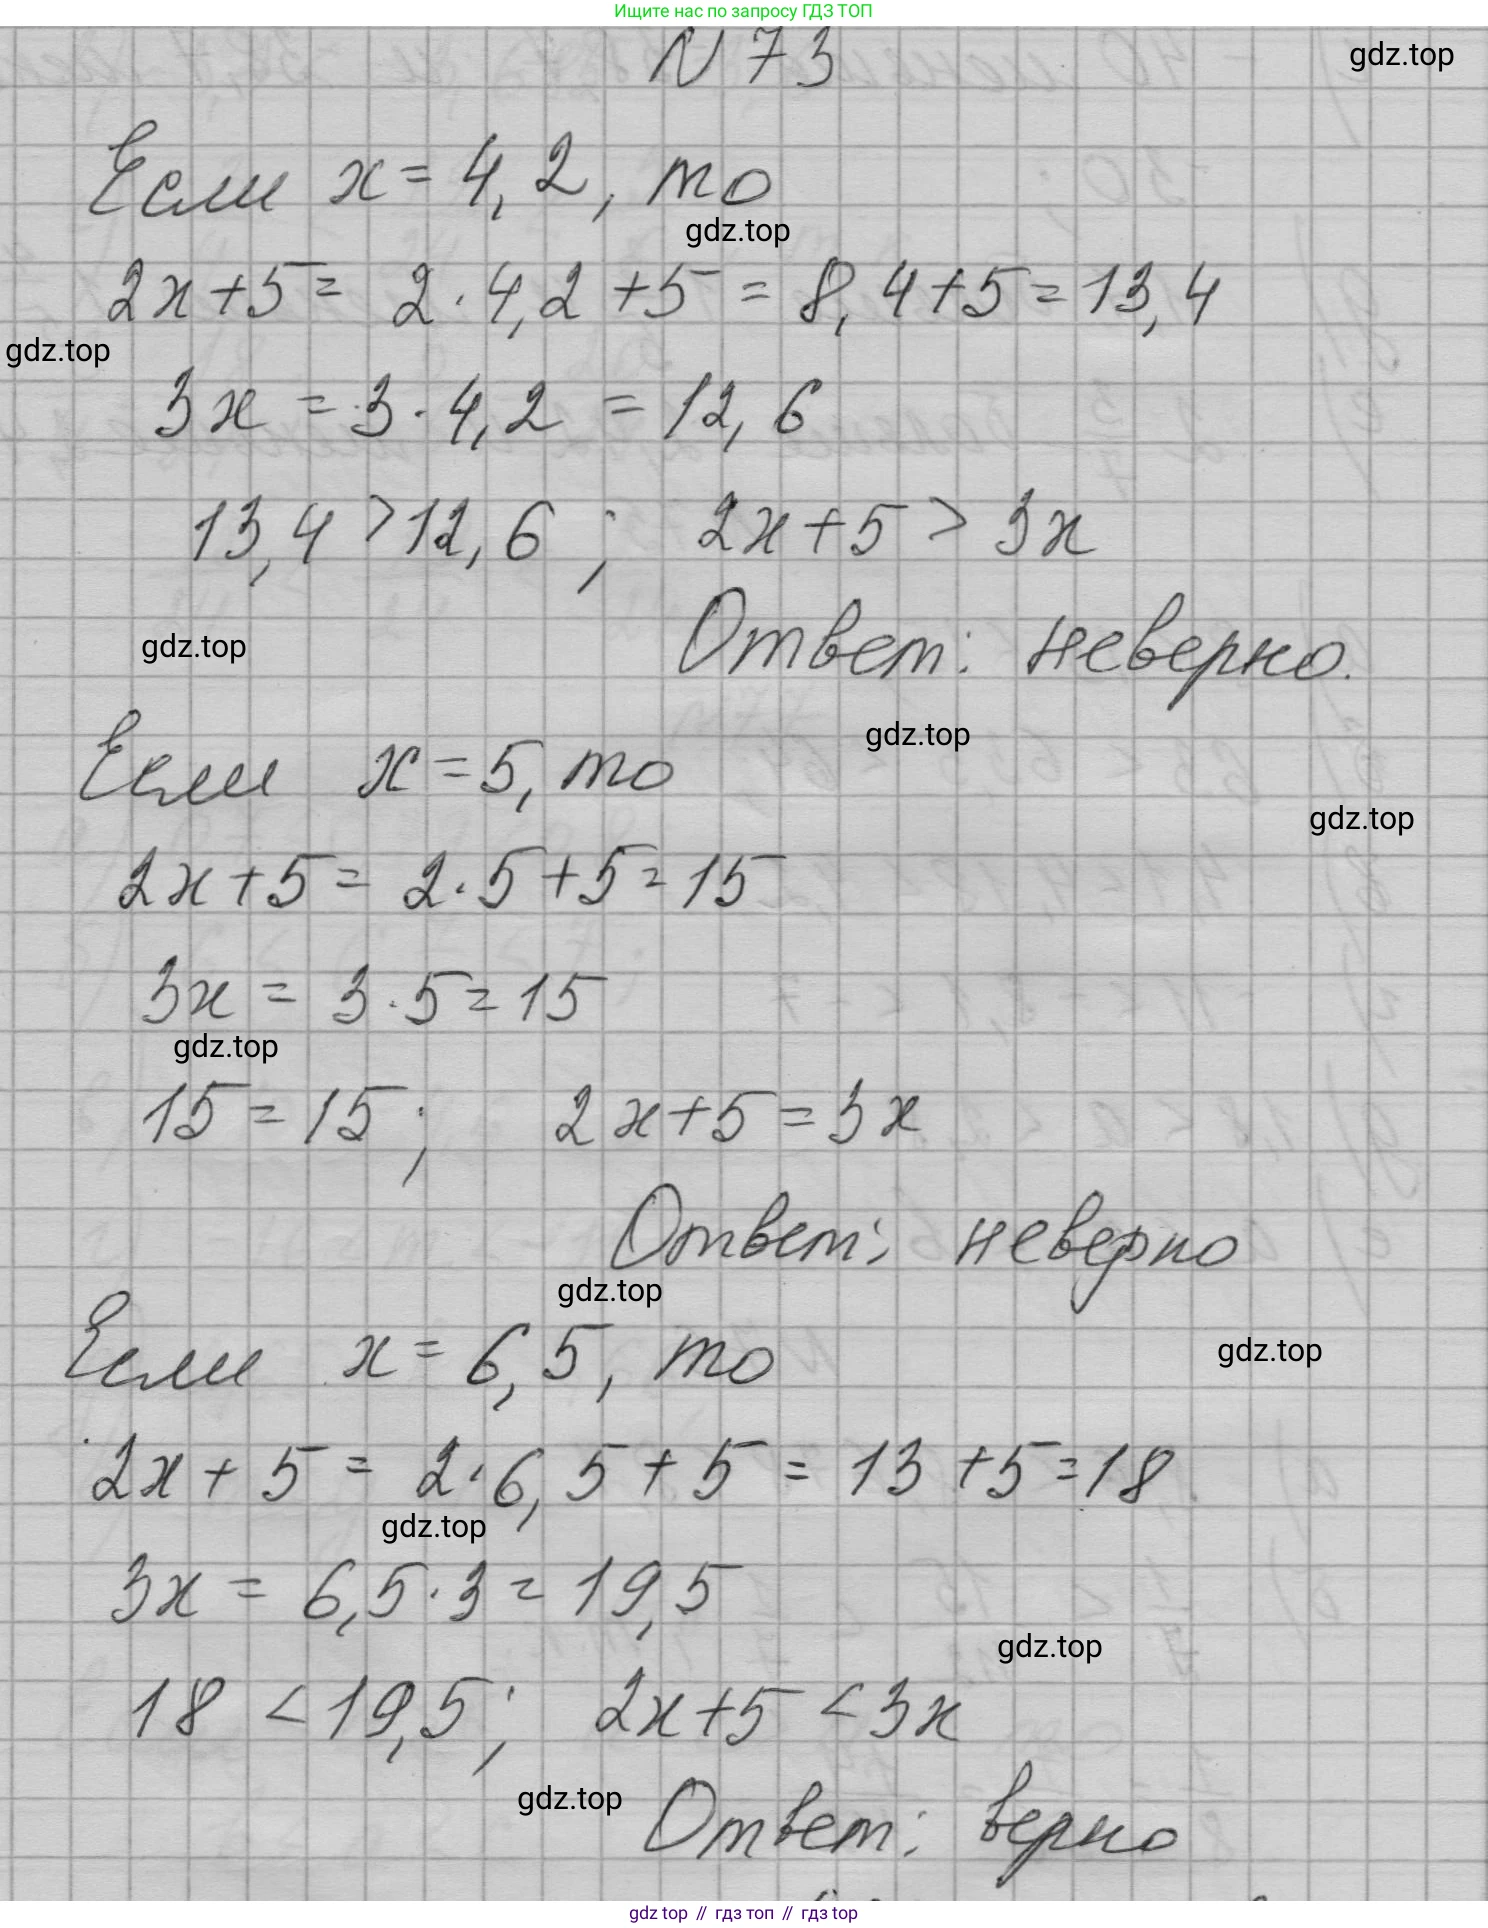 Ищите нас по запросу ГДЗ ТОП
N 73
gdz.top
Если x = 4,2, то
gdz.top
2x+5 = 2·4,2+5 = 8,4+5 = 13,4
gdz.top
3x = 3·4,2 = 12,6
13,4 > 12,6 ; 2x+5 > 3x
gdz.top
Ответ: неверно.
gdz.top
Если x = 5, то
gdz.top
2x+5 = 2·5+5 = 15
3x = 3·5 = 15
gdz.top
15 = 15 ; 2x+5 = 3x
Ответ: неверно
gdz.top
Если x = 6,5, то
gdz.top
2x + 5 = 2·6,5 + 5 = 13 + 5 = 18
gdz.top
3x = 6,5·3 = 19,5
gdz.top
18 < 19,5 ; 2x+5 < 3x
gdz.top
Ответ: верно
gdz top // гдз топ // гдз top